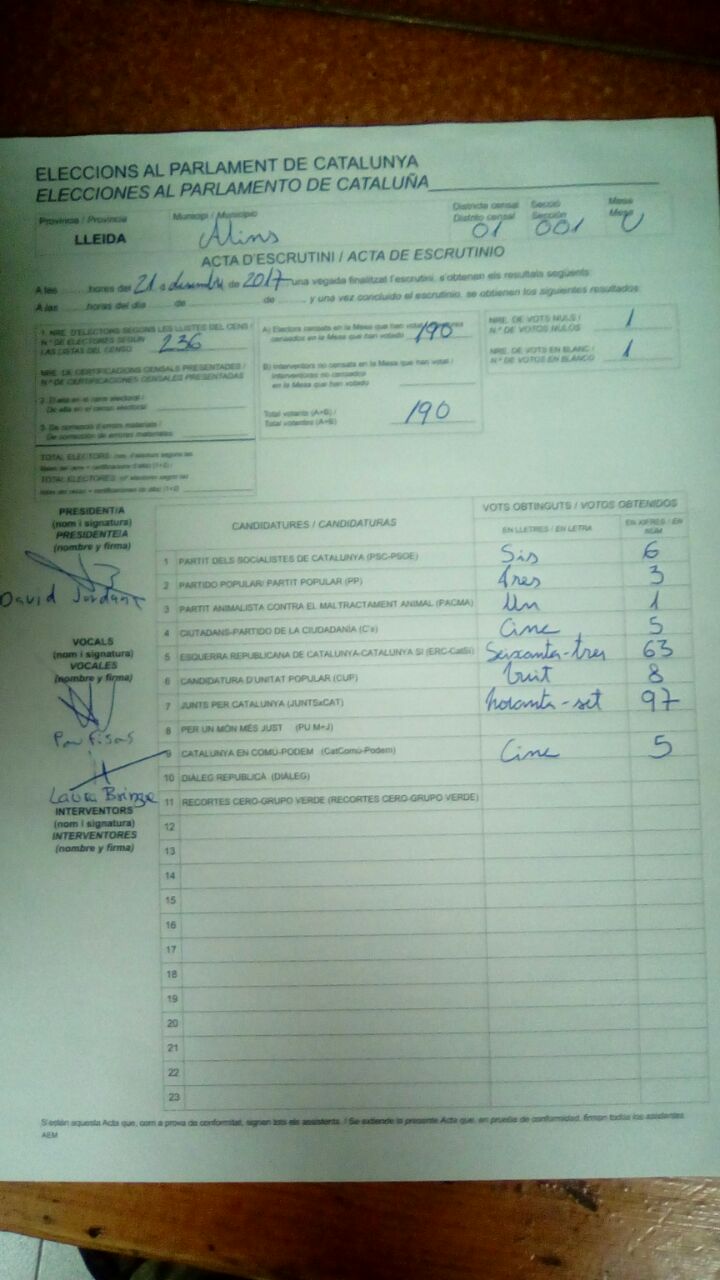 ELECCIONS AL PARLAMENT DE CATALUNYA
ELECCIONES AL PARLAMENTO DE CATALUÑA
Provincia / Provincia Municipi / Municipio Districte censal Secció Mesa
Distrito censal Sección Mesa
LLEIDA Alins 01 001 U
ACTA D'ESCRUTINI / ACTA DE ESCRUTINIO
A les hores del 21 de 2017 una vegada finalitzat l'escrutini, s'obtenen els resultats següents:
A las horas del día de de y una vez concluido el escrutinio, se obtienen los siguientes resultados:
1. NRE. D'ELECTORS SEGONS LES LLISTES DEL CENS /
N.º DE ELECTORES SEGÚN
LAS LISTAS DEL CENSO 236
NRE. DE CERTIFICACIONS CENSALS PRESENTADES /
N.º DE CERTIFICACIONES CENSALES PRESENTADAS
2. D'alta en el cens electoral /
De alta en el censo electoral
3. De correcció d'errors materials /
De corrección de errores materiales
A) Electors censats en la Mesa que han votat
censados en la Mesa que han votado 190
B) Interventors no censats en la Mesa que han votat /
Interventores no censados
en la Mesa que han votado
Total votants (A+B) /
Total votantes (A+B) 190
NRE. DE VOTS NULS /
N.º DE VOTOS NULOS 1
NRE. DE VOTS EN BLANC /
N.º DE VOTOS EN BLANCO 1
TOTAL ELECTORS
TOTAL ELECTORES
PRESIDENT/A
(nom i signatura)
PRESIDENTE/A
(nombre y firma)
David Jordana
VOCALS
(nom i signatura)
VOCALES
(nombre y firma)
Laura
INTERVENTORS
(nom i signatura)
INTERVENTORES
(nombre y firma)
CANDIDATURES / CANDIDATURAS VOTS OBTINGUTS / VOTOS OBTENIDOS
EN LLETRES / EN LETRA EN XIFRES / EN NÚM
1 PARTIT DELS SOCIALISTES DE CATALUNYA (PSC-PSOE) Sis 6
2 PARTIDO POPULAR/ PARTIT POPULAR (PP) tres 3
3 PARTIT ANIMALISTA CONTRA EL MALTRACTAMENT ANIMAL (PACMA) Un 1
4 CIUTADANS-PARTIDO DE LA CIUDADANÍA (C's) Cinc 5
5 ESQUERRA REPUBLICANA DE CATALUNYA-CATALUNYA SÍ (ERC-CatSí) Seixanta-tres 63
6 CANDIDATURA D'UNITAT POPULAR (CUP) Vuit 8
7 JUNTS PER CATALUNYA (JUNTSxCAT) noranta-set 97
8 PER UN MÓN MÉS JUST (PU M+J)
9 CATALUNYA EN COMÚ-PODEM (CatComú-Podem) Cinc 5
10 DIÀLEG REPUBLICÀ (DIÀLEG)
11 RECORTES CERO-GRUPO VERDE (RECORTES CERO-GRUPO VERDE)
12
13
14
15
16
17
18
19
20
21
22
23
S'estén aquesta Acta que, com a prova de conformitat, signen tots els assistents. / Se extiende la presente Acta que, en prueba de conformidad, firman todos los asistentes
AEM